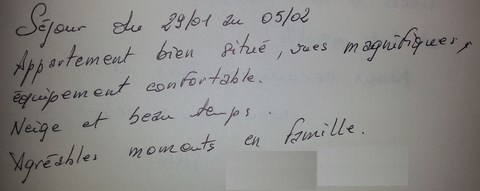 Séjour du 29/01 au 05/02
Appartement bien situé, vues magnifiques,
équipement confortable.
Neige et beau temps.
Agréables moments en famille.